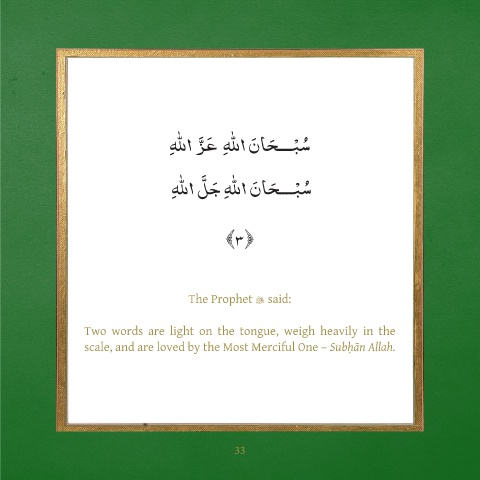 سُبْـــحَانَ اللهِ عَزَّ اللهِ
سُبْـــحَانَ اللهِ جَلَّ اللهِ
﴿٣﴾
The Prophet ﷺ said:
Two words are light on the tongue, weigh heavily in the
scale, and are loved by the Most Merciful One – Subḥān Allah.
33